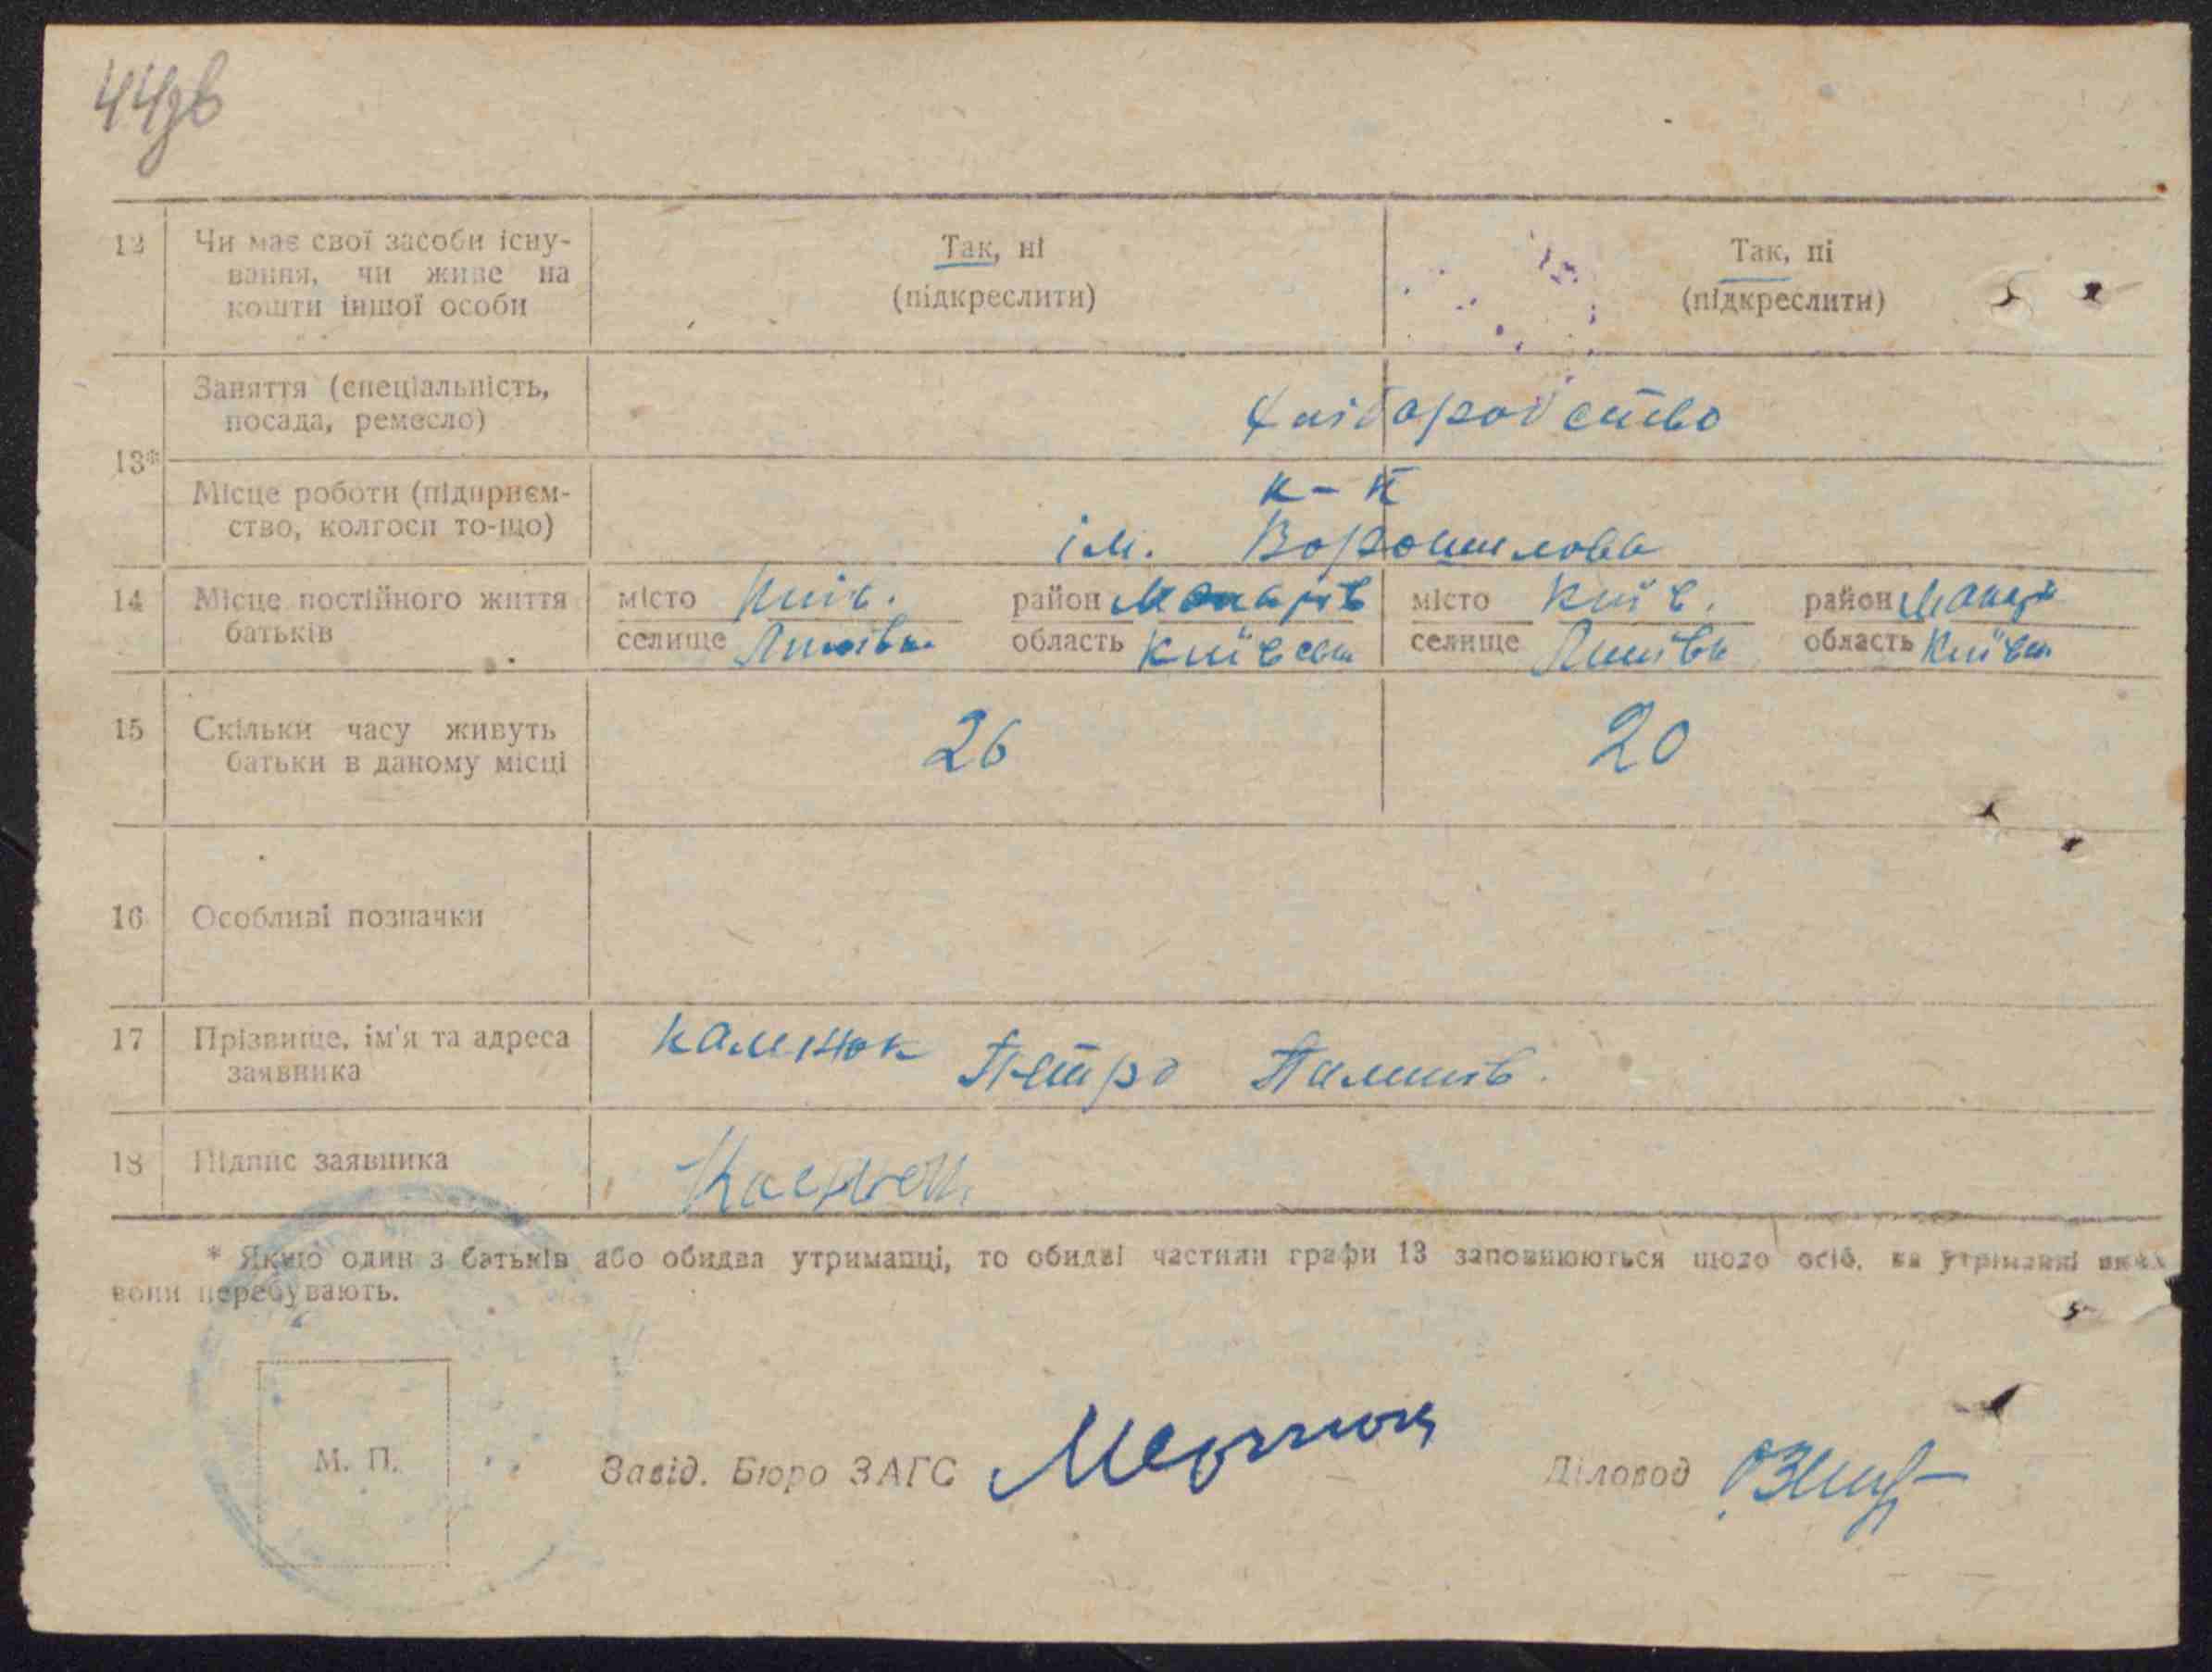 44зв
12 Чи має свої засоби існу-
вання, чи живе на
кошти іншої особи
Так, ні
(підкреслити)
Так, ні
(підкреслити)
13*
Заняття (спеціальність,
посада, ремесло)
Хліборобство
Місце роботи (підприєм-
ство, колгосп то-що)
к-п
ім. Ворошилова
14 Місце постійного життя
батьків
місто Київ. район Макарів
селище область Київськ
місто Київ. район Макар
селище область Київськ
15 Скільки часу живуть
батьки в даному місці
26
20
16 Особливі позначки
17 Прізвище, ім'я та адреса
заявника
Каленюк Петро
18 Підпис заявника
* Якщо один з батьків або обидва утриманці, то обидві частини графи 13 заповнюються щодо осіб, на утриманні яких
вони перебувають.
М. П.
Завід. Бюро ЗАГС
Діловод